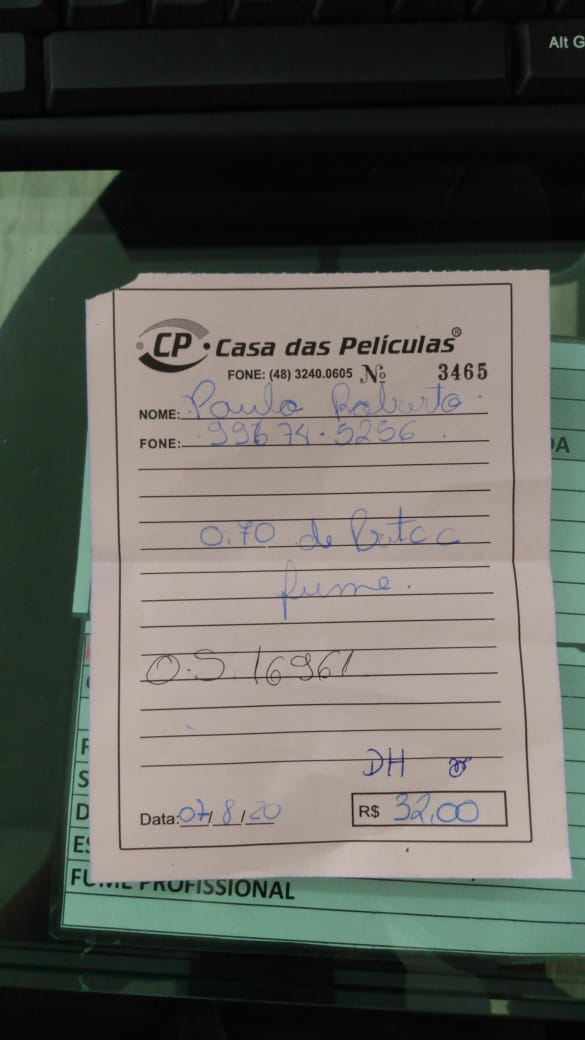 Alt G
CP Casa das Películas®
FONE: (48) 3240.0605 Nº 3465
NOME: Paulo Roberto.
FONE: 99674-5256.
DA
0.70 de
fume.
O.S. 16961
DH
Data: 07/8/20 R$ 32,00
R
S
D
ES
FUME PROFISSIONAL